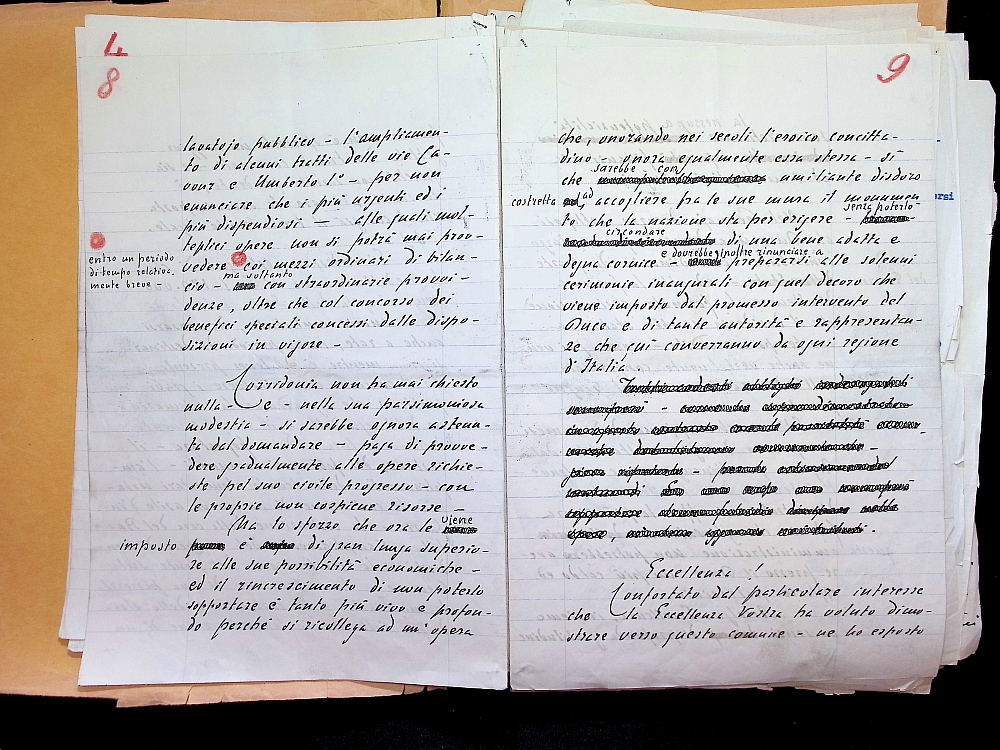 4
8
lavatojo pubblico - l'ampliamen-
to di alcuni tratti delle vie Ca-
vour e Umberto I° - per non
enunciare che i più urgenti ed i
più dispendiosi - alle quali mol-
teplici opere non si potrà mai prov-
entro un periodo
di tempo relativa-
mente breve -
vedere coi mezzi ordinari di bilan-
ma soltanto
cio - con straordinarie provvi-
denze, oltre che col concorso dei
benefici speciali concessi dalle dispo-
sizioni in vigore -
Corridonia non ha mai chiesto
nulla - e - nella sua parsimoniosa
modestia - si sarebbe ognora astenu-
ta dal domandare - paga di provve-
dere gradualmente alle opere richie-
ste pel suo civile progresso - con
le proprie non cospicue risorse -
Ma lo sforzo che ora le viene
imposto è di gran lunga superio-
re alle sue possibilità economiche -
ed il rincrescimento di non poterlo
sopportare è tanto più vivo e profon-
do perché si ricollega ad un'opera
9
che, onorando nei secoli l'eroico concitta-
dino - onora egualmente essa stessa - si
sarebbe con
che umiliante disdoro
costretta ad accogliere fra le sue mura il monumen
senza poterlo
to che la nazione sta per erigere -
circondare
di una bene adatta e
e dovrebbe inoltre rinunciare a
degna cornice - prepararsi alle solenni
cerimonie inaugurali con quel decoro che
viene imposto dal promesso intervento del
Duce e di tante autorità e rappresentan-
ze che qui converranno da ogni regione
d'Italia.
Eccellenza!
Confortato dal particolare interesse
che la Eccellenza Vostra ha voluto dimo-
strare verso questo comune - ne ho esposto